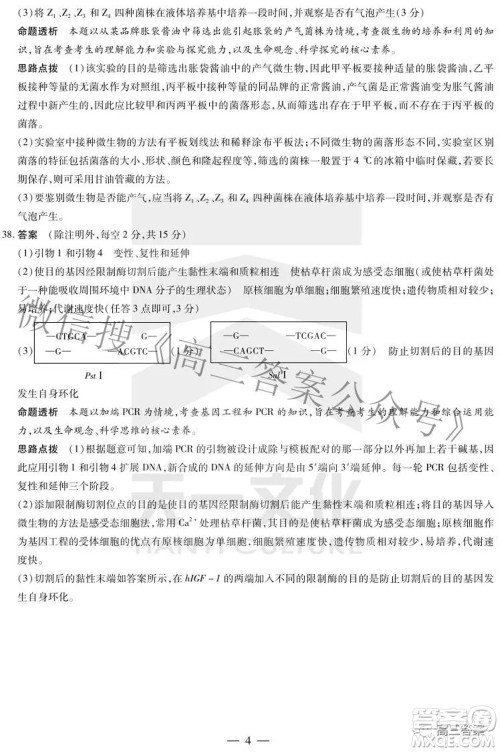 (3)将 Z₁、Z₂、Z₃ 和 Z₄ 四种菌株在液体培养基中培养一段时间,并观察是否有气泡产生(3 分)
命题透析 本题以从某品牌胀袋酱油中筛选出引起胀袋的产气菌株为情境,考查微生物的培养和利用的知识,旨在考查考生的理解能力和实验与探究能力,以及生命观念、科学探究的核心素养。
思路点拨 (1)该实验的目的是筛选出胀袋酱油中的产气微生物,因此甲平板要接种适量的胀袋酱油,乙平板接种等量的无菌水作为对照,丙平板中接种等量的同品牌正常酱油,由于酱油中原来就有微生物,而胀袋酱油过程中新产生的,因此应比较甲和丙两平板中的菌落形态,从而筛选出甲平板中存在而丙平板中不存在的菌落。
(2)实验室中接种微生物的方法有平板划线法和稀释涂布平板法;不同微生物的菌落形态不同,实验室区别菌落的特征包括菌落形状、大小、颜色和隆起程度等。筛选的菌株一般置于 4 ℃的冰箱中临时保藏,若要长期保存,则可采用甘油管藏的方法。
(3)要鉴别微生物是否能产气,应当将 Z₁、Z₂、Z₃ 和 Z₄ 四种菌株在液体培养基中培养一段时间,并观察是否有气泡产生。
38. 答案 (除注明外,每空 2 分,共 15 分)
(1)引物 1 和引物 4 变性、复性和延伸
(2)使目的基因经限制酶切割后能产生黏性末端和质粒相连 使枯草杆菌成为感受态细胞(或使枯草杆菌处于一种能吸收周围环境中 DNA 分子的生理状态) 原核细胞为单细胞;细胞繁殖速度快;遗传物质相对较少;易培养;代谢速度快(任答 3 点即可,3 分)
(3) —CTGCA —G— (1 分) —G— —TCGAC— (1 分) 防止切割后的目的基因
—G— ACGTC— —CAGCT —G—
Pst Ⅰ Sal Ⅰ
发生自身环化
命题透析 本题以加端 PCR 为情境,考查基因工程和 PCR 的知识,旨在考查考生的理解能力和综合运用能力,以及生命观念、科学思维的核心素养。
思路点拨 (1)根据题意可知,加端 PCR 的引物被设计成除与模板配对的那一部分以外再加上若干碱基,因此应用引物 1 和引物 4 扩展 DNA,新合成的 DNA 的延伸方向是由 5′端向 3′端延伸。每一轮 PCR 包括变性、复性和延伸三个阶段。
(2)添加限制酶切割位点的目的是使目的基因经限制酶切割后能产生黏性末端和质粒相连;将目的基因导入微生物的方法是感受态细胞法,常用 Ca²⁺ 处理枯草杆菌,其目的是使枯草杆菌成为感受态细胞;原核细胞作为基因工程的受体细胞的优点有原核细胞为单细胞、细胞繁殖速度快、遗传物质相对较少,易培养,代谢速度快。
(3)切割后的黏性末端如答案所示,在 hIGF-1 的两端加入不同的限制酶的目的是防止切割后的目的基因发生自身环化。
— 4 —
微信搜《高三答案公众号》
天一文化
TIANYI CULTURE
高三答案